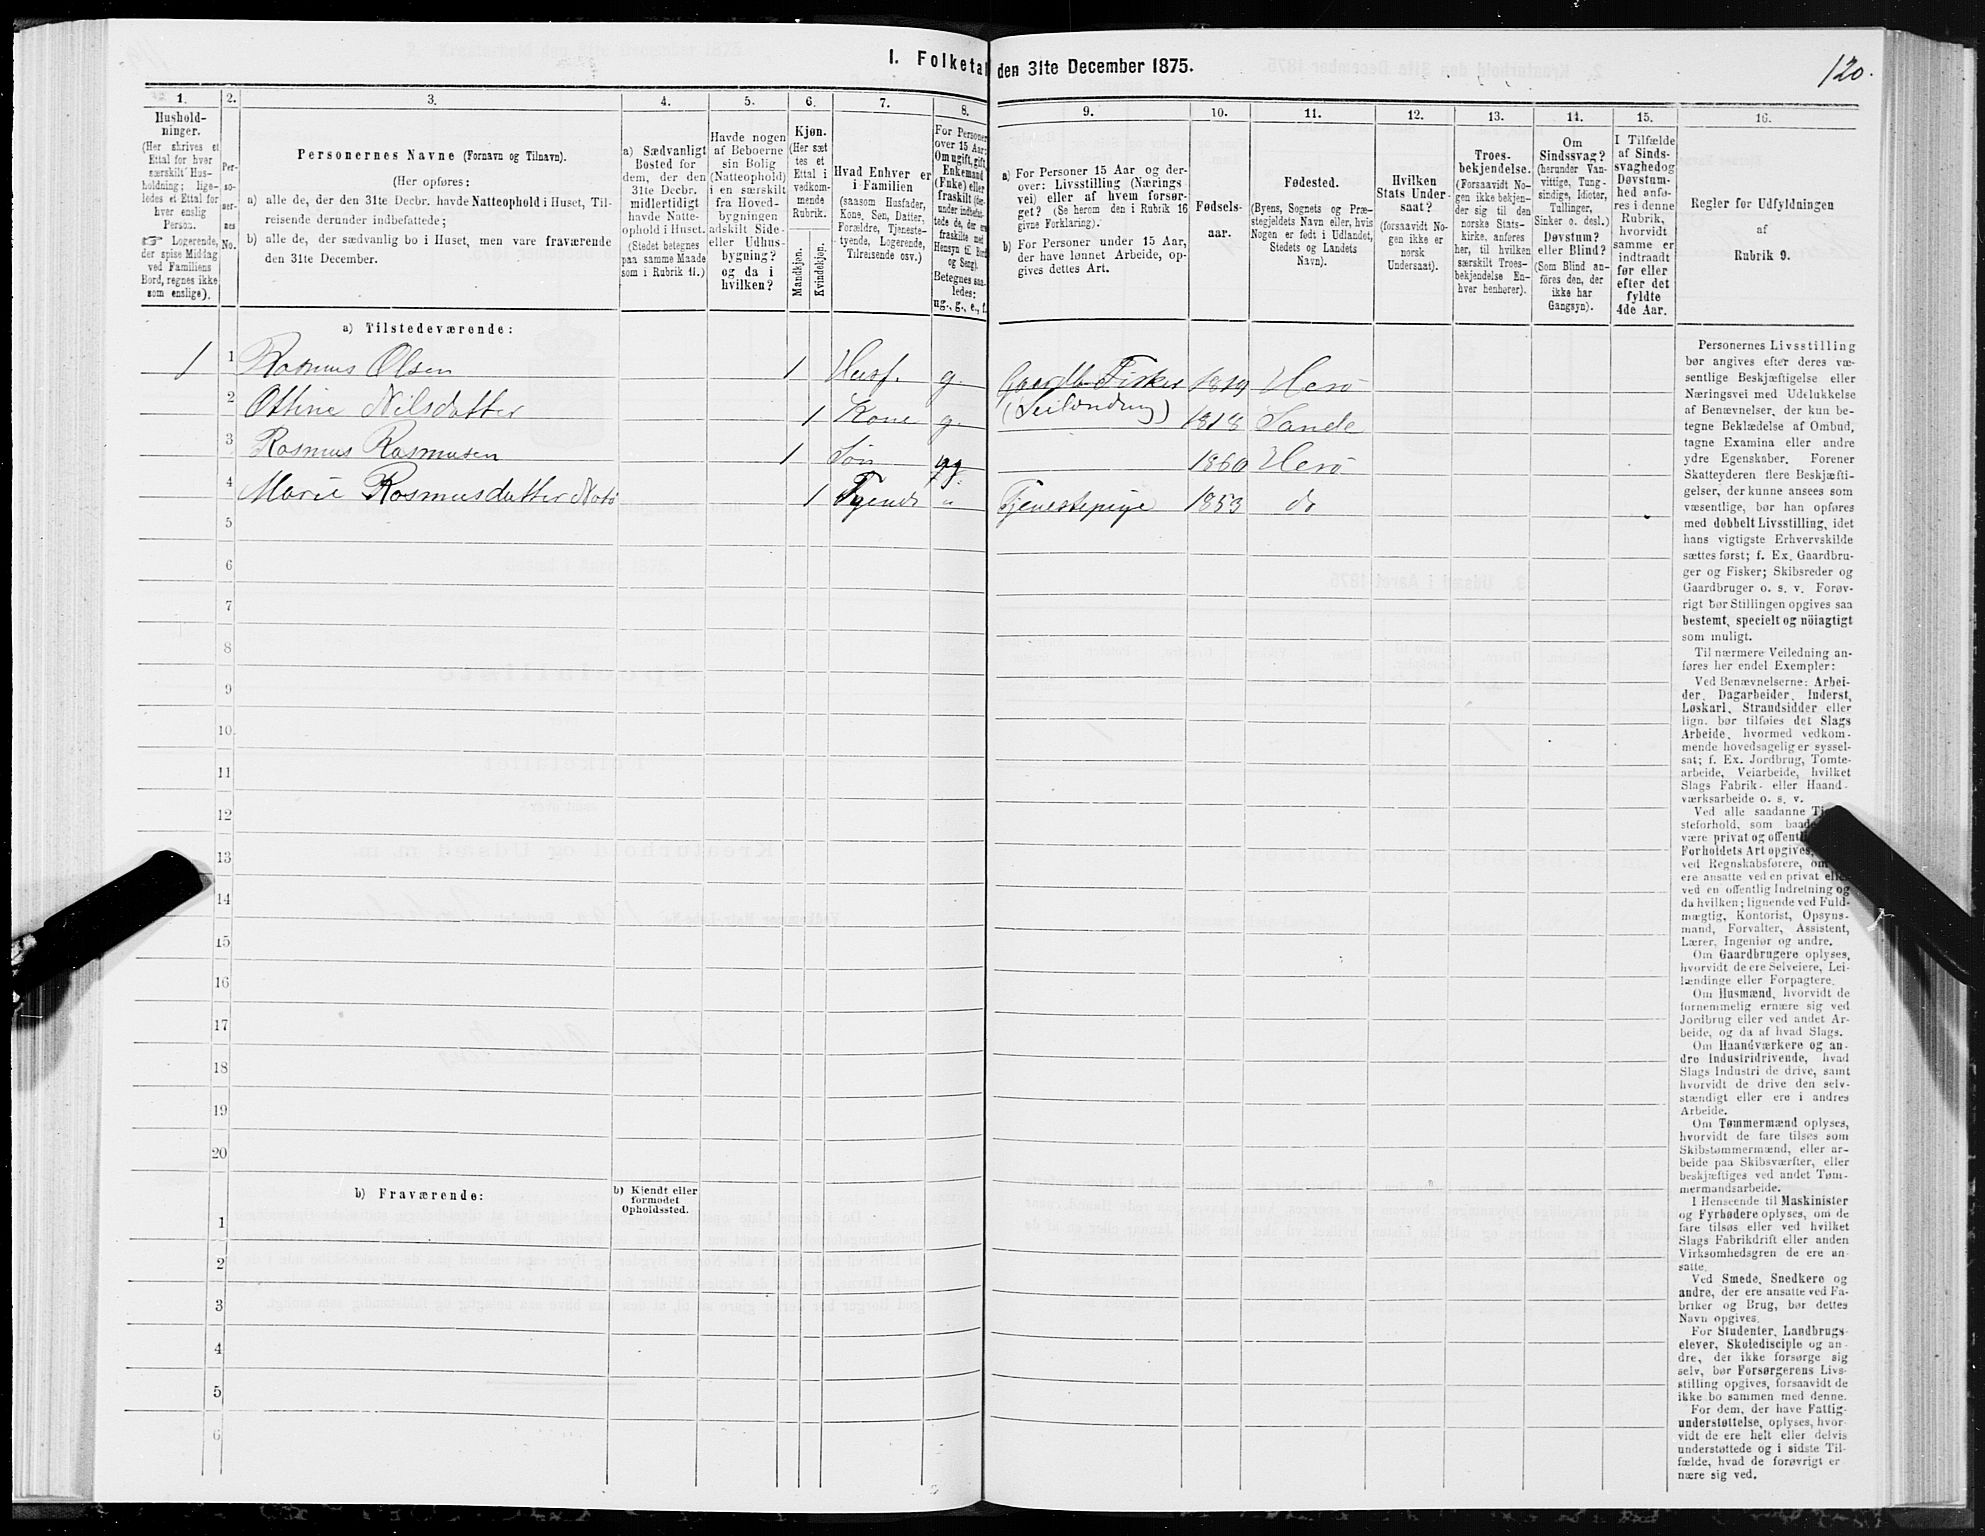 I. Folketal den 31te December 1875.
120.
1.
Hushold-
ninger.
(Her skrives et
Ettal for hver
særskilt Hus-
holdning; lige-
ledes et Ettal for
hver enslig
Person.
☞ Logerende,
der spise Middag
ved Familiens
Bord, regnes ikke
som enslige).
2.
Per-
so-
ner-
nes
No.
3.
Personernes Navne (Fornavn og Tilnavn).
(Her opføres:
a) alle de, der den 31te Decbr. havde Natteophold i Huset, Til-
reisende derunder indbefattede;
b) alle de, der sædvanlig bo i Huset, men vare fraværende
den 31te December.
4.
a) Sædvanligt
Bosted for
dem, der den
31te Decbr.
midlertidigt
havde Natte-
ophold i Huset.
(Stedet betegnes
paa samme Maade
som i Rubrik 11.)
5.
Havde nogen
af Beboerne
sin Bolig
(Natteophold)
i en særskilt
fra Hoved-
bygningen
adskilt Side-
eller Udhus-
bygning?
og da i
hvilken?
6.
Kjøn.
(Her sæt
tes et
Ettal i
vedkom-
mende
Rubrik.
Mandkjøn.
Kvindekjøn.
7.
Hvad Enhver er
i Familien
(saasom Husfader,
Kone, Søn, Datter,
Forældre, Tjeneste-
tyende, Logerende,
Tilreisende osv.)
8.
For Personer
over 15 Aar:
Om ugift, gift,
Enkemand
(Enke) eller
fraskilt (der-
under indbefat-
tede de, der ere
fraskilte med
Hensyn til Bord
og Seng).
Betegnes saa-
ledes:
ug., g., e., f.
9.
a) For Personer 15 Aar og der-
over: Livsstilling (Nærings
vei) eller af hvem forsør-
get? (Se herom den i Rubrik 16
givne Forklaring).
b) For Personer under 15 Aar,
der have lønnet Arbeide, op-
gives dettes Art.
10.
Fødsels-
aar.
11.
Fødested.
(Byens, Sognets og Præ-
stegjeldets Navn eller, hvis
Nogen er født i Udlandet,
Stedets og Landets
Navn).
12.
Hvilken
Stats Under-
saat?
(forsaavidt No-
gen ikke er
norsk
Undersaat).
13.
Troes-
bekjendelse.
(Forsaavidt No-
gen ikke bekjen-
der sig til den
norske Stats-
kirke, anføres
her, til hvilken
særskilt Troes-
bekjendelse En-
hver henhører).
14.
Om
Sindssvag?
(herunder Van-
vittige, Tung-
sindige, Idioter,
Tullinger,
Sinker o. desl.)
Døvstum?
eller Blind?
(Som Blind an-
føres den, der
ikke har
Gangsyn).
15.
I Tilfælde
af Sinds-
svaghed og
Døvstum-
hed anfø-
res i denne
Rubrik,
hvorvidt
samme er
indtraadt
før eller
efter det
fyldte
4de Aar.
16.
Regler for Udfyldningen
af
Rubrik 9.
a) Tilstedeværende:
1 1 Rasmus Olsen 1 Husf. g. Gaardb. Fisker 1819 Herø
2 Ottine Nilsdatter 1 Kone g. (Leilænding) 1818 Sande
3 Rasmus Rasmusen 1 Søn ug. 1860 Herø
4 Marie Rasmusdatter 1 Tyende u Tjenestepige 1853 do
5
6
7
8
9
10
11
12
13
14
15
16
17
18
19
20
b) Fraværende:
b) Kjendt eller
formodet
Opholdssted.
1
2
3
4
5
6
Personernes Livsstilling
bør angives efter deres væ-
sentlige Beskjæftigelse eller
Næringsvei med Udelukkelse
af Benævnelser, der kun be-
tegne Beklædelse af Ombud,
tagne Examina eller andre
ydre Egenskaber. Forener
Skatteyderen flere Beskjæfti-
gelser, der kunne ansees som
væsentlige, bør han opføres
med dobbelt Livsstilling, idet
hans vigtigste Erhvervskilde
sættes først; f. Ex. Gaardbru-
ger og Fisker; Skibsreder og
Gaardbruger o. s. v. Forøv-
rigt bør Stillingen opgives saa
bestemt, specielt og nöiagtigt
som muligt.
Til nærmere Veiledning an-
føres her endel Exempler:
Ved Benævnelserne: Arbei-
der, Dagarbeider, Inderst,
Løskarl, Strandsidder eller
lign. bør tilføies det Slags
Arbeide, hvormed vedkom-
mende hovedsagelig er syssel-
sat; f. Ex. Jordbrug, Tomte-
arbeide, Veiarbeide, hvilket
Slags Fabrik- eller Haand-
værksarbeide o. s. v.
Ved alle saadanne
steforhold, som
være privat og
Forholdets Art opgives,
ved Regnskabsførere,
ere ansatte ved en privat eller
ved en offentlig Indretning og
da hvilken; lignende ved Fuld-
mægtig, Kontorist, Opsyns-
mand, Forvalter, Assistent,
Lærer, Ingeniør og andre.
Om Gaardbrugere oplyses,
hvorvidt de ere Selveiere, Lei-
lændinge eller Forpagtere.
Om Husmænd, hvorvidt de
fornemmelig ernære sig ved
Jordbrug eller ved andet Ar-
beide, og da af hvad Slags.
Om Haandværkere og an-
dre Industridrivende, hvad
Slags Industri de drive, samt
hvorvidt de drive den selv-
stændigt eller ere i andres
Arbeide.
Om Tømmermænd oplyses,
hvorvidt de fare tilsøs som
Skibstømmermænd, eller ar-
beide paa Skibsværfter, eller
beskjæftiges ved andet Tøm-
mermandsarbeide.
I Henseende til Maskinister
og Fyrbødere oplyses, om de
fare tilsøs eller ved hvilket
Slags Fabrikdrift eller anden
Virksomhedsgren de ere an-
satte.
Ved Smede, Snedkere og
andre, der ere ansatte ved Fa-
briker og Brug, bør dettes
Navn opgives.
For Studenter, Landbrugs-
elever, Skoledisciple og an-
dre, der ikke forsørge sig
selv, bør Forsørgerens Livs-
stilling opgives, forsaavidt de
ikke bo sammen med denne.
For dem, der have Fattig-
understøttelse, oplyses, hvor-
vidt de ere helt eller delvis
understøttede og i sidste Til-
fælde, hvad de forøvrigt er-
nære sig ved.